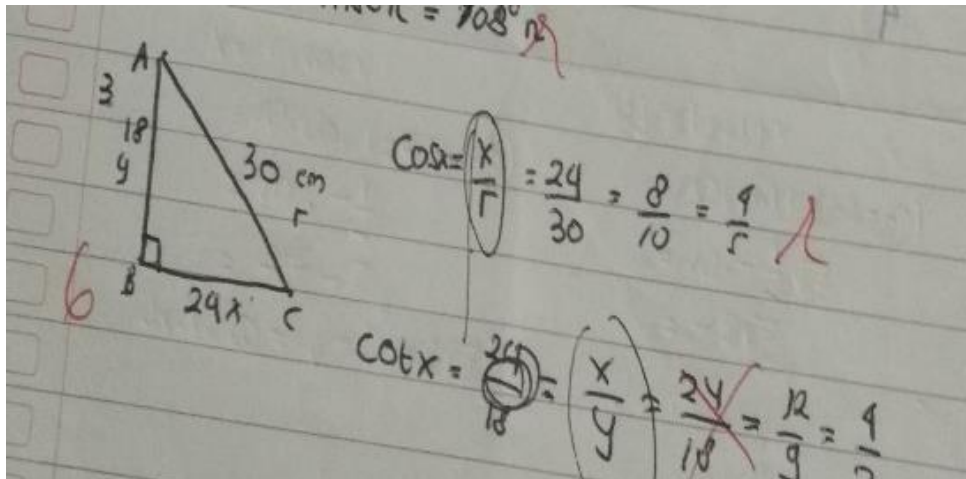 = 108°
A
3
18
y
30 cm
r
B
24 x
C
6
Cos x = x/r = 24/30 = 8/10 = 4/5
Cot x = 24/18 = x/y = 24/18 = 12/9 = 4